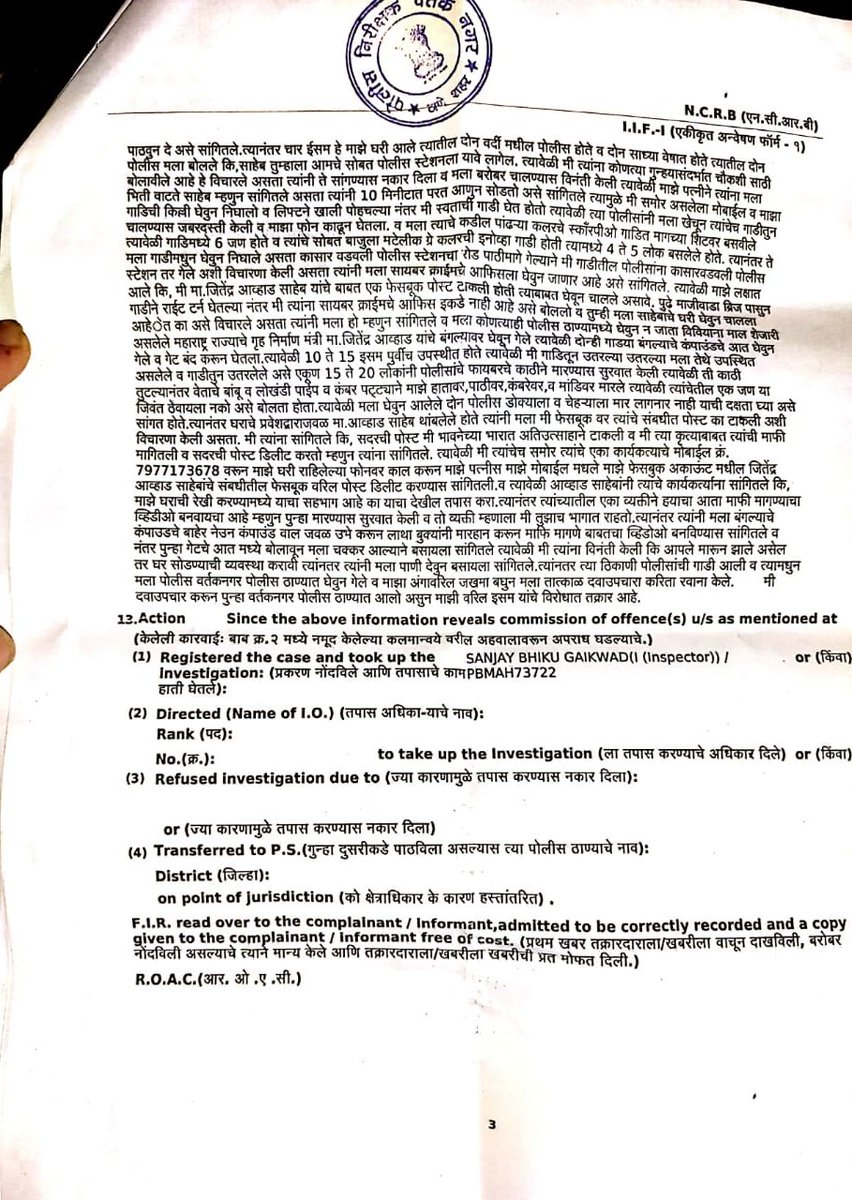 पोलीस निरीक्षक वर्तक नगर
ठाणे शहर
N.C.R.B (एन.सी.आर.बी)
I.I.F.-I (एकीकृत अन्वेषण फॉर्म - १)
पाठवुन दे असे सांगितले.त्यानंतर चार ईसम हे माझे घरी आले त्यातील दोन वर्दी मधील पोलीस होते व दोन साध्या वेषात होते त्यातील दोन
पोलीस मला बोलले कि,साहेब तुम्हाला आमचे सोबत पोलीस स्टेशनला यावे लागेल. त्यावेळी मी त्यांना कोणत्या गुन्हयासंदर्भात चौकशी साठी
बोलावीले आहे हि विचारले असता त्यांनी ते सांगण्यास नकार दिला व मला बरोबर चालण्यास विनंती केली त्यावेळी माझे पत्नीने त्यांना मला
भिती वाटते साहेब म्हणुन सांगितले असता त्यांनी 10 मिनीटात परत आणुन सोडतो असे सांगितले त्यामुळे मी समोर असलेला मोबाईल व माझा
गाडिची किल्ली घेवुन निघालो व लिफ्टने खाली पोहचल्या नंतर मी स्वताची गाडी घेत होतो त्यावेळी त्या पोलीसांनी मला खेचून त्यांचेच गाडीतुन
चालण्यास जबरदस्ती केली व माझा फोन काढून घेतला. व मला त्याचे कडील पांढऱ्या कलरचे स्कॉरपीओ गाडित मागच्या शिटवर बसवीले
त्यावेळी गाडिमध्ये 6 जण होते व त्यांचे सोबत बाजुला मटेलीक ग्रे कलरची इनोव्हा गाडी होती त्यामध्ये 4 ते 5 लोक बसलेले होते. त्यानंतर ते
मला गाडीमधुन घेवुन निघाले असता कासार वडवली पोलीस स्टेशनचा रोड पाठीमागे गेल्याने मी गाडीतील पोलीसांना कासारवडवली पोलीस
स्टेशन तर गेले अशी विचारणा केली असता त्यांनी मला सायबर क्राईमचे आफिसला घेवुन जाणार आहे असे सांगितले. त्यावेळी माझे लक्षात
आले कि, मी मा.जितेंद्र आव्हाड साहेब यांचे बाबत एक फेसबूक पोस्ट टाकली होती त्याबाबत घेवून चालले असावे. पुढे माजीवाडा ब्रिज पासुन
गाडीने राईट टर्न घेतल्या नंतर मी त्यांना सायबर क्राईमचे आफिस इकडे नाही आहे असे बोललो व तुम्ही मला साहेबांचे घरी घेवुन चालला
आहेात का असे विचारले असता त्यांनी मला हो म्हणुन सांगितले व मला कोणत्याही पोलीस ठाण्यामध्ये घेवुन न जाता विवियाना माल शेजारी
असलेले महाराष्ट्र राज्याचे गृह निर्माण मंत्री मा.जितेंद्र आव्हाड यांचे बंगल्यावर घेवून गेले त्यावेळी दोन्ही गाडया बंगल्याचे कंपाउंडचे आत घेवुन
गेले व गेट बंद करून घेतला.त्यावेळी 10 ते 15 इसम पुर्वीच उपस्थीत होते त्यावेळी मी गाडितून उतरल्या उतरल्या मला तेथे उपस्थित
असलेले व गाडीतुन उतरलेले असे एकूण 15 ते 20 लोकांनी पोलीसांचे फायबरचे काठीने मारण्यास सुरवात केली त्यावेळी ती काठी
तुटल्यानंतर वेताचे बांबू व लोखंडी पाईप व कंबर पट्ट्याने माझे हातावर,पाठीवर,कंबरेवर,व मांडिवर मारले त्यावेळी त्यांचेतील एक जण या
जिवंत ठेवायला नको असे बोलता होता.त्यावेळी मला घेवुन आलेले दोन पोलीस डोक्याला व चेहऱ्याला मार लागनार नाही याची दक्षता घ्या असे
सांगत होते.त्यानंतर घराचे प्रवेशद्वाराजवळ मा.आव्हाड साहेब थांबलेले होते त्यांनी मला मी फेसबूक वर त्यांचे संबधीत पोस्ट का टाकली अशी
विचारणा केली असता. मी त्यांना सांगितले कि, सदरची पोस्ट मी भावनेच्या भारात अतिउत्साहाने टाकली व मी त्या कृत्याबाबत त्यांची माफी
मागितली व सदरची पोस्ट डिलीट करतो म्हणुन त्यांना सांगितले. त्यावेळी मी त्यांचेच समोर त्यांचे एका कार्यकत्याचे मोबाईल क्रं.
7977173678 वरून माझे घरी राहिलेल्या फोनवर काल करून माझे पत्नीस माझे मोबाईल मधले माझे फेसबुक अकाऊंट मधील जितेंद्र
आव्हाड साहेबांचे संबधीतील फेसबूक वरिल पोस्ट डिलीट करण्यास सांगितली.व त्यावेळी आव्हाड साहेबांनी त्याचे कार्यकर्त्याना सांगितले कि,
माझे घराची रेखी करण्यामध्ये याचा सहभाग आहे का याचा देखील तपास करा.त्यानंतर त्यांच्यातील एका व्यक्तीने हयाचा आता माफी मागण्याचा
व्हिडीओ बनवायचा आहे म्हणुन पुन्हा मारण्यास सुरवात केली व तो व्यक्ती म्हणाला मी तुझाच भागात राहतो.त्यानंतर त्यांनी मला बंगल्याचे
कंपाउडचे बाहेर नेउन कंपाउंड वाल जवळ उभे करून लाथा बुक्यांनी मारहान करून माफि मागणे बाबतचा व्हिडीओ बनविण्यास सांगितले व
नंतर पुन्हा गेटचे आत मध्ये बोलावून मला चक्कर आल्याने बसायला सांगितले त्यावेळी मी त्यांना विनंती केली कि आपले मारून झाले असेल
तर घर सोडण्याची व्यवस्था करावी त्यांनतर त्यांनी मला पाणी देवुन बसायला सांगितले.त्यांनतर त्या ठिकाणी पोलीसांची गाडी आली व त्यामधुन
मला पोलीस वर्तकनगर पोलीस ठाण्यात घेवुन गेले व माझा अंगावरिल जखमा बघुन मला तात्काळ दवाउपचारा करिता रवाना केले. मी
दवाउपचार करून पुन्हा वर्तकनगर पोलीस ठाण्यात आलो असुन माझी वरिल इसम यांचे विरोधात तक्रार आहे.
13.Action Since the above information reveals commission of offence(s) u/s as mentioned at
(केलेली कारवाई: बाब क्र.२ मध्ये नमूद केलेल्या कलमान्वये वरील अहवालावरून अपराध घडल्याचे.)
(1) Registered the case and took up the SANJAY BHIKU GAIKWAD(I (Inspector)) / or (किंवा)
Investigation: (प्रकरण नोंदविले आणि तपासाचे कामPBMAH73722
हाती घेतले):
(2) Directed (Name of I.O.) (तपास अधिका-याचे नाव):
Rank (पद):
No.(क्र.): to take up the Investigation (ला तपास करण्याचे अधिकार दिले) or (किंवा)
(3) Refused investigation due to (ज्या कारणामुळे तपास करण्यास नकार दिला):
or (ज्या कारणामुळे तपास करण्यास नकार दिला)
(4) Transferred to P.S.(गुन्हा दुसरीकडे पाठविला असल्यास त्या पोलीस ठाण्याचे नाव):
District (जिल्हा):
on point of jurisdiction (को क्षेत्राधिकार के कारण हस्तांतरित) .
F.I.R. read over to the complainant / informant,admitted to be correctly recorded and a copy
given to the complainant / informant free of cost. (प्रथम खबर तक्रारदाराला/खबरीला वाचून दाखविली, बरोबर
नोंदविली असल्याचे त्याने मान्य केले आणि तक्रारदाराला/खबरीला खबरीची प्रत मोफत दिली.)
R.O.A.C.(आर. ओ .ए .सी.)
3